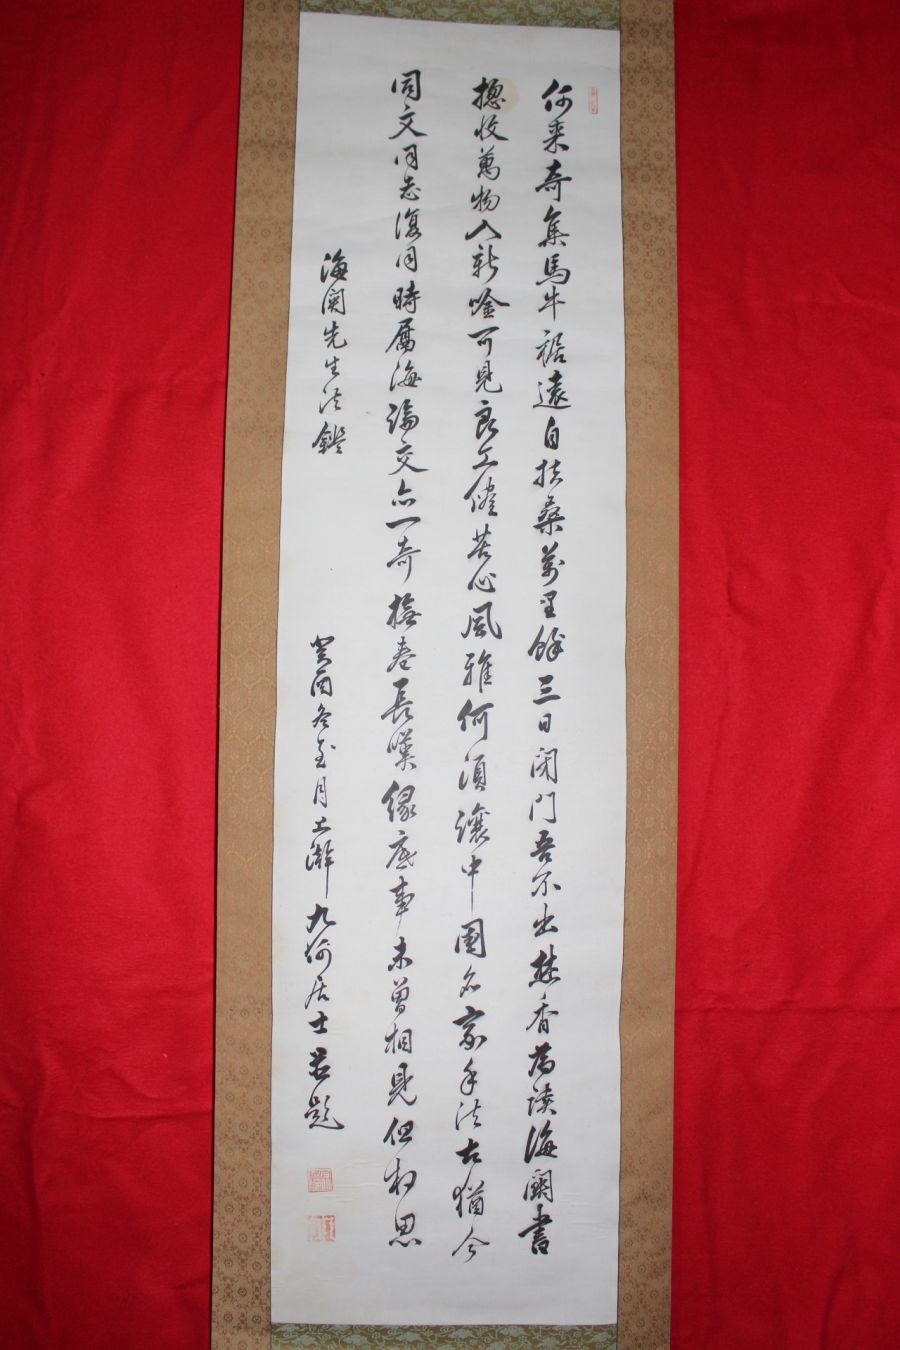 何来奇集馬牛裾遠自扶桑萬里餘三日閉門吾不出焚香為讀海關書
摠收萬物入新唫可見良工儘苦心風雅何須讓中國名家手法古猶今
同文同志復同時厪海論交亦一奇撫卷長嘆緣底事未曾相見但相思
海関先生法鑑
癸酉冬至月上澣九何居士呂題